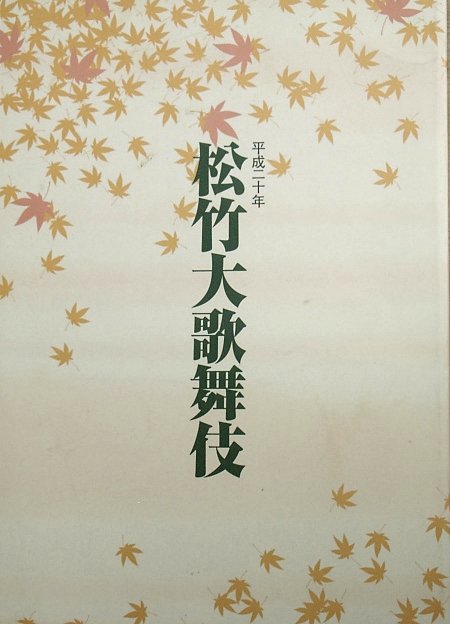 平成二十年
松竹大歌舞伎